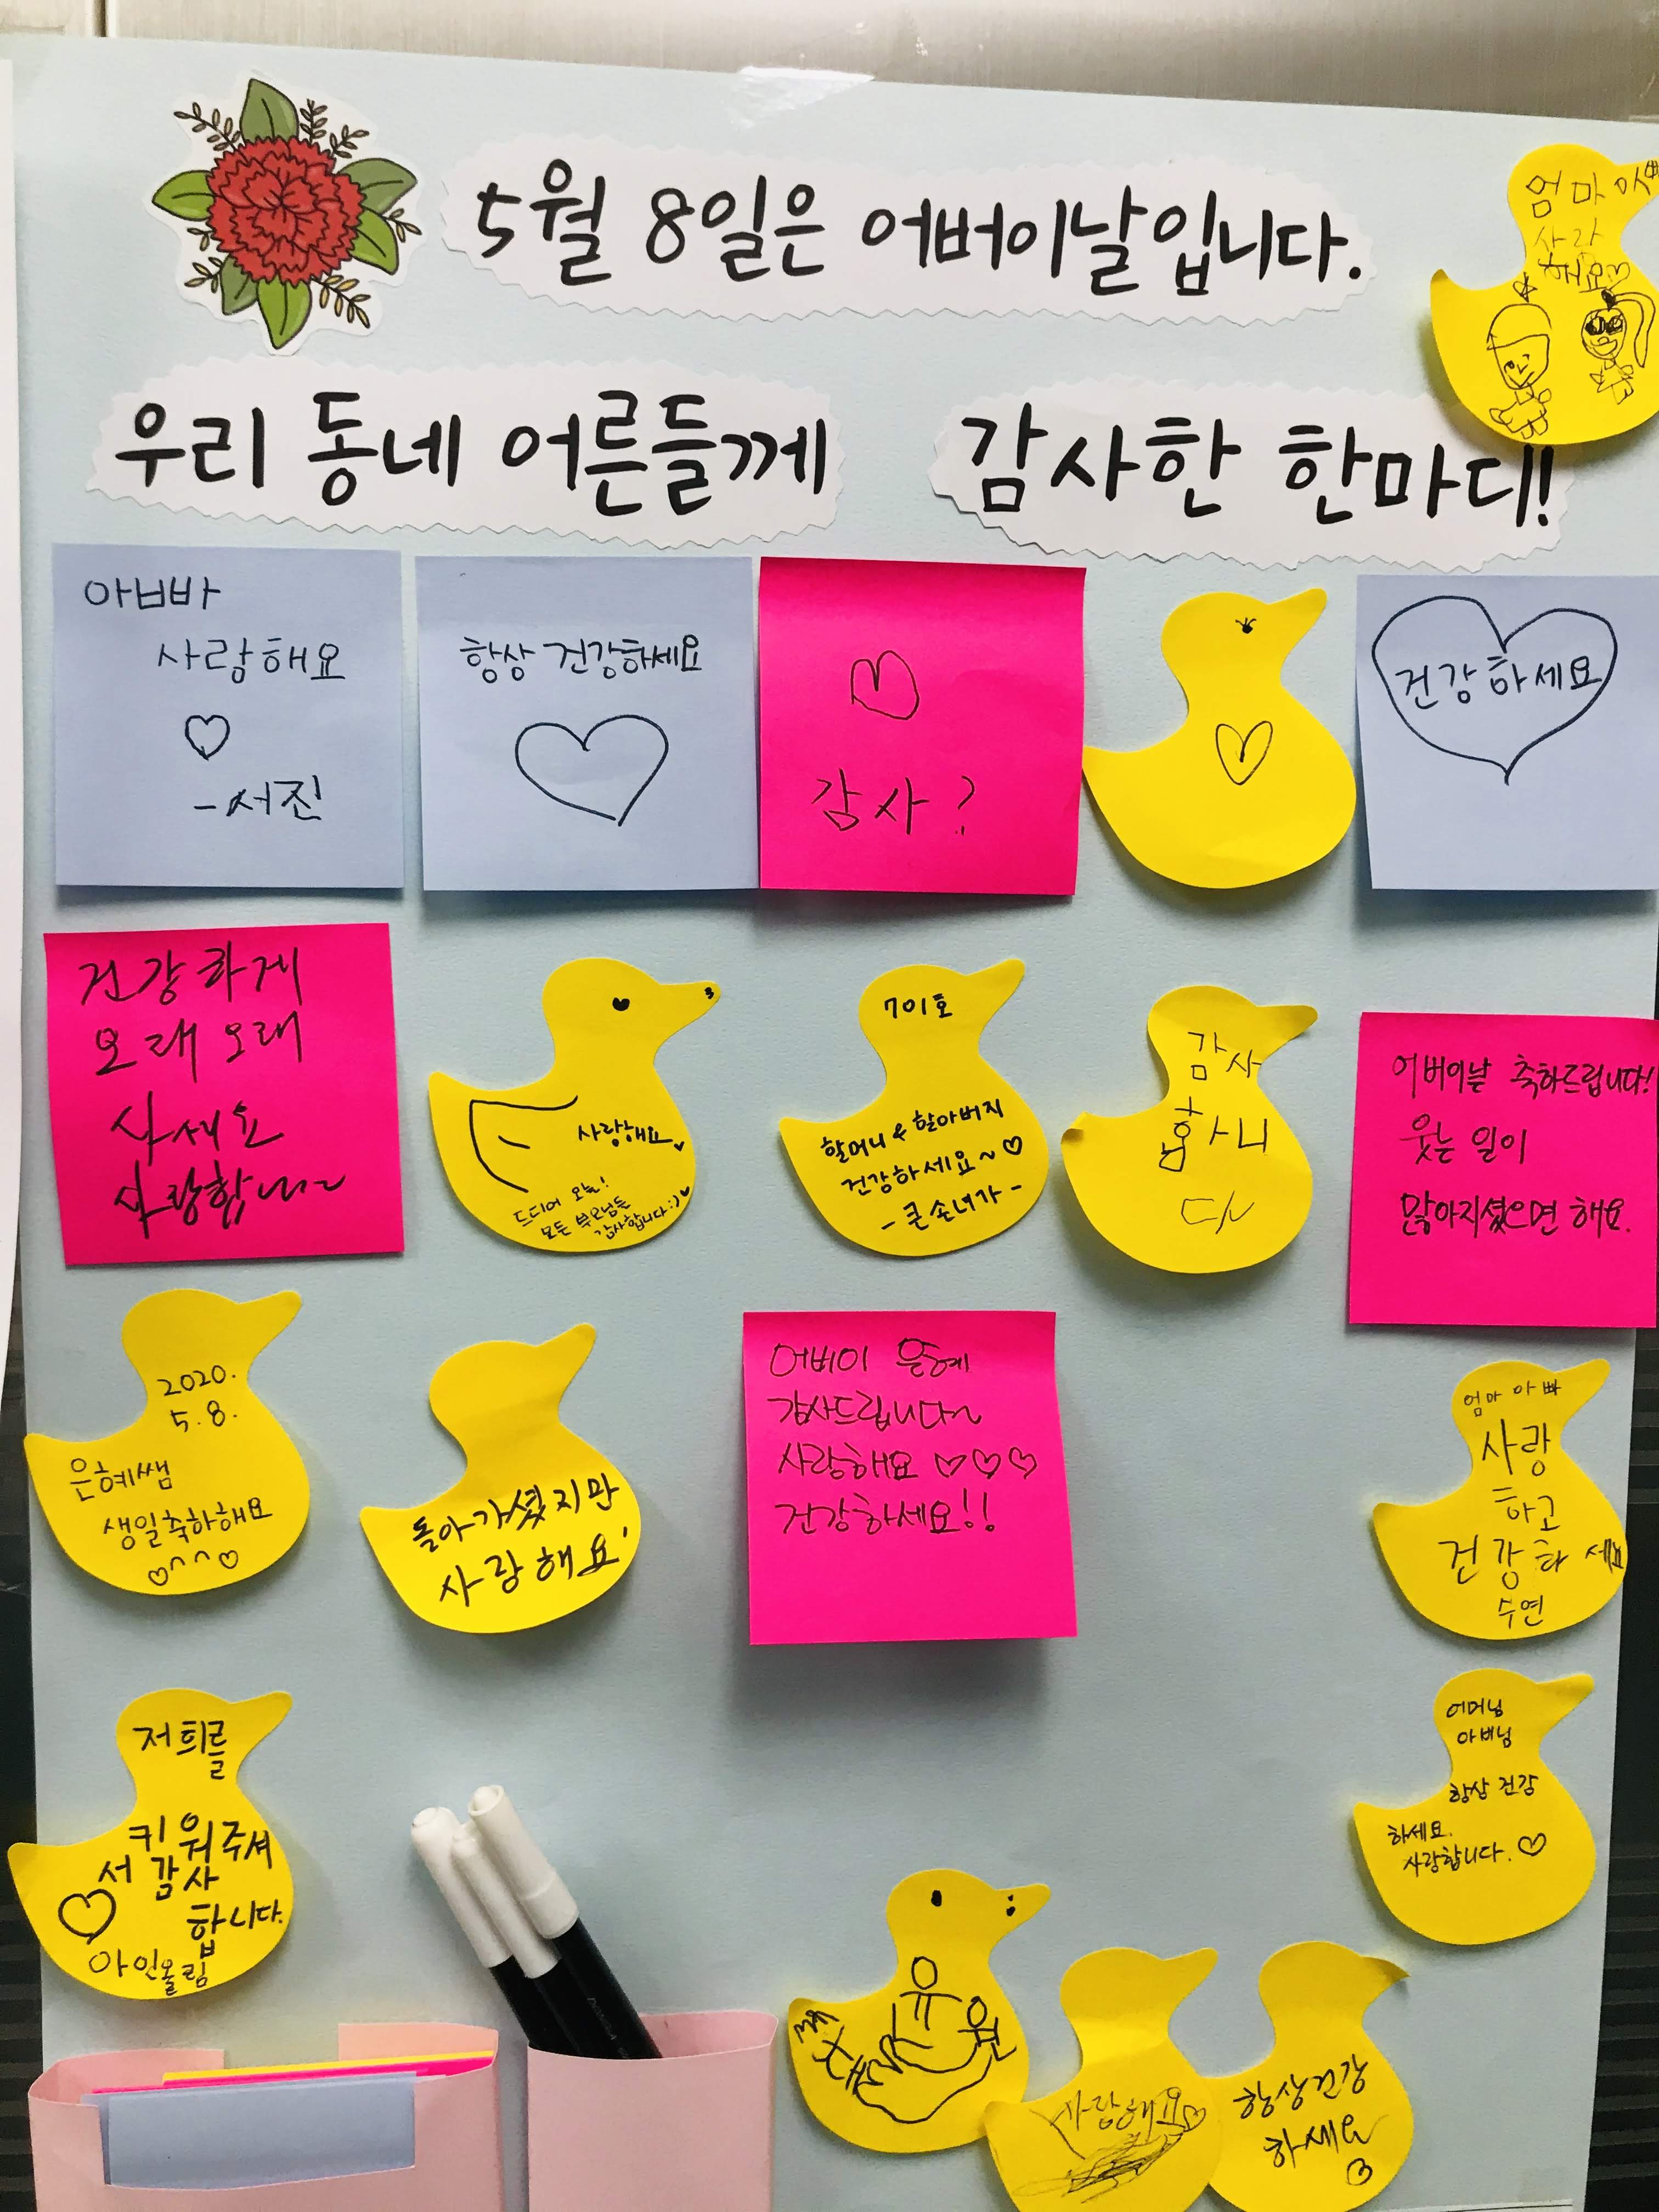 5월 8일은 어버이날입니다.
우리 동네 어른들께 감사한 한마디!
엄마
사라
해요♡
아빠
사랑해요
♡
-서진
항상 건강하세요
♡
감사?
건강하세요
건강하게
오래오래
사세요
사랑합니다~
사랑해요
드디어 오늘!
모든 부모님들
감사합니다:)
701호
할머니 & 할아버지
건강하세요~♡
-큰손녀가-
감사
합니
다
어버이날 축하드립니다!
웃는 일이
많아지셨으면 해요.
2020.
5.8.
은혜쌤
생일축하해요
♡^^♡
돌아가셨지만
사랑해요
어버이 은혜
감사드립니다~
사랑해요 ♡♡♡
건강하세요!!
엄마 아빠
사랑
하고
건강하세요
수연
저희를
키워주셔
서 감사
합니다.
아인올림
어머님
아버님
항상 건강
하세요.
사랑합니다.♡
사랑해요♡
항상건강
하세요